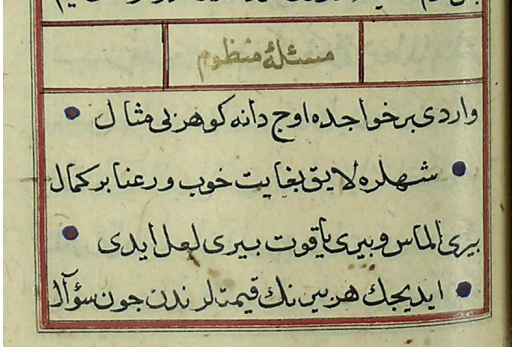 مسئلهٔ منظوم
واردی بر خواجده اوج دانه کوهر بی مثال
شهلره لایق بغایت خوب و رعنا بر کمال
بیری الماس و بیری یاقوت بیری لعل ایدی
ایدیجك هر بیرینك قیمتلرندن چون سؤال